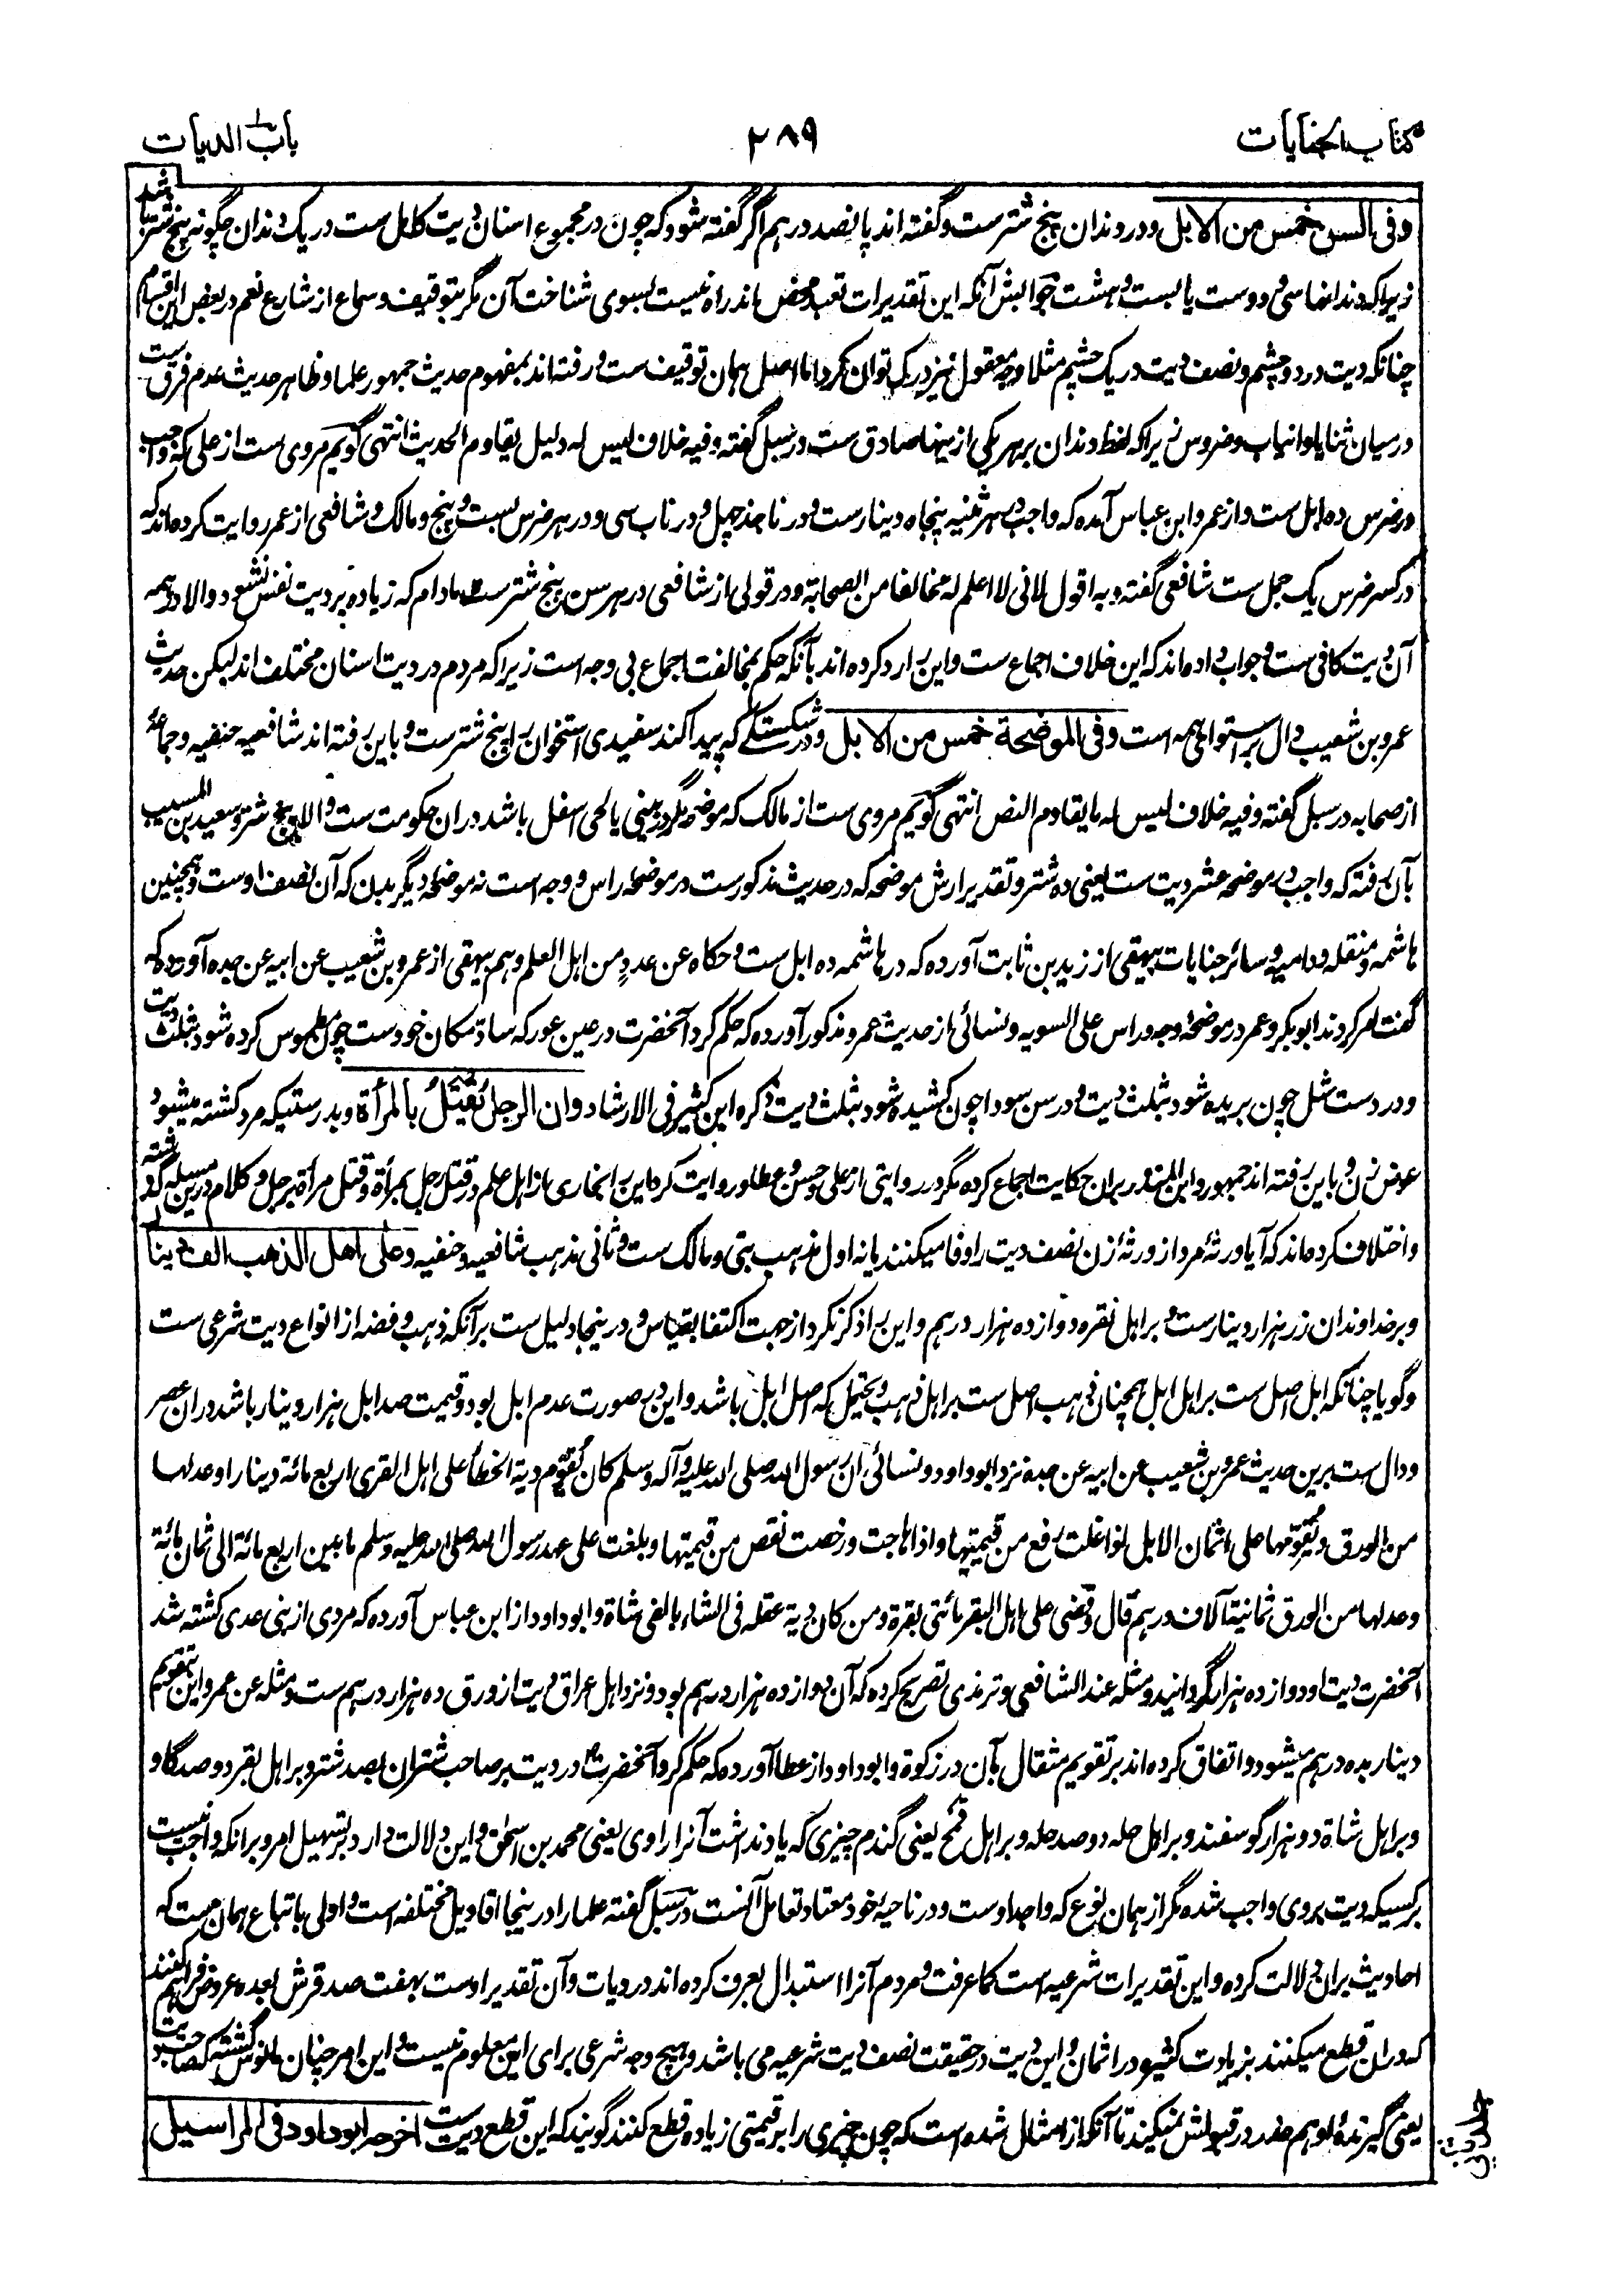 کتاب الجنایات ۲۸۹ باب الدیات
وفی السن خمس من الابل و در دندان پنج شترست و گفته اند پانصد درهم اگر گفته شود که چون در مجموع اسنان دیت کامل ست در یک دندان چگونه پنج شتر باشد
زیرا که دندانها سی و دوست یا بست و هشت جوابش آنکه این تقدیرات تعبد محض اند راه نیست بسوی شناخت آن مگر بتوقیف و سماع از شارع نعم در بعض این اقسام
چنانکه دیت در دو چشم و نصف دیت در یک چشم مثلا وجه معقول نیز درک توان کرد اما اصل همان توقیف ست و رفته اند بمفهوم حدیث جمهور علما و ظاهر حدیث عدم فرق ست
درمیان ثنایا و انیاب و ضروس زیرا که لفظ دندان بر هر یکی ازینها صادق ست و در سبل گفته وفیه خلاف لیس له دلیل یقاوم الحدیث انتهی گویم مروی ست از علی که واجب
در ضرس ده ابل ست و از عمر و ابن عباس آمده که واجب در هر ثنیه پنجاه دینارست و در ناجذ چهل و در ناب سی و در هر ضرس بست و پنج و مالک و شافعی از عمر روایت کرده اند که
در کسر ضرس یک جمل ست شافعی گفته و به اقول لانی لا اعلم له مخالفا من الصحابة و در قولی از شافعی در هر سن پنج شترست مادام که زیاده بر دیت نفس نشود و الا در همه
آن دیت کافی ست و جواب داده اند که این خلاف اجماع ست و این را رد کرده اند بآنکه حکم بمخالفت اجماع بی وجه است زیرا که مردم در دیت اسنان مختلف اند لیکن حدیث
عمرو بن شعیب دال بر استوای همه است وفی الموضحة خمس من الابل و در شکستگی که پیدا کند سفیدی استخوان را پنج شترست و باین رفته اند شافعیه و حنفیه و جماعة
از صحابه در سبل گفته وفیه خلاف لیس له ما یقاوم النص انتهی گویم مروی ست از مالک که موضحه اگر در بینی یا لحی اسفل باشد دران حکومت ست و الا پنج شتر و سعید بن المسیب
بآن رفته که واجب در موضحه عشر دیت ست یعنی ده شتر و تقدیر ارش موضحه که در حدیث مذکورست در موضحه راس و وجه است نه موضحه دیگر بدن که آن نصف اوست و همچنین
هاشمه و منقله و دامیه و سائر جنایات بیهقی از زید بن ثابت آورده که در هاشمه ده ابل ست و حکاه عن عدد من اهل العلم و هم بیهقی از عمرو بن شعیب عن ابیه عن جده آورده که
گفت امر کردند ابوبکر و عمر در موضحه وجه و راس علی السویه و نسائی از حدیث عمرو مذکور آورده که حکم کرد آنحضرت در عین عور که سادة مکان خودست چون مطموس کرده شود بثلث دیت
و در دست شل چون بریده شود بثلث دیت و در سن سودا چون کشیده شود بثلث دیت ذکره ابن کثیر فی الارشاد وان الرجل یُقتَلُ بالمرأة و بدرستیکه مرد کشته میشود
عوض زن و باین رفته اند جمهور و ابن المنذر بران حکایت اجماع کرده مگر در روایتی از علی و حسن و عطا و روایت کرد این را بخاری از اهل علم در قتل رجل بمرأة و قتل مرأة برجل و کلام درین مسیله گذشته
و اختلاف کرده اند که آیا ورثهٔ مرد از ورثهٔ زن نصف دیت را وفا میکنند یا نه اول مذهب بتی و مالک ست و ثانی مذهب شافعیه و حنفیه وعلی اهل الذهب الف دینار
و بر خداوندان زر هزار دینارست و بر اهل نقره دوازده هزار درهم و این را ذکر نکرد از جهت اکتفا بقیاس و درینجا دلیل ست برآنکه ذهب و فضه از انواع دیت شرعی ست
و گویا چنانکه ابل اصل ست بر اهل ابل همچنان ذهب اصل ست بر اهل ذهب و یحتمل که اصل ابل باشد و این در صورت عدم ابل بود و قیمت صد ابل هزار دینار باشد دران عصر
و دال ست برین حدیث عمرو بن شعیب عن ابیه عن جده نزد ابوداود و نسائی ان رسول الله صلی الله علیه وآله وسلم کان یُقوّم دیة الخطأ علی اهل القری اربع مائة دینار او عدلها
من الورق و یُقوّمها علی اثمان الابل اذا غلت رفع من قیمتها و اذا هاجت و رخصت نقص من قیمتها و بلغت علی عهد رسول الله صلی الله علیه وسلم ما بین اربع مائة الی ثمان مائة
وعدلها من الورق ثمانیة آلاف درهم قال وقضی علی اهل البقر مائتی بقرة ومن کان دیة عقله فی الشاء بالفی شاة و ابوداود از ابن عباس آورده که مردی از بنی عدی کشته شد
آنحضرت دیت او دوازده هزار گردانید و مثله عند الشافعی و ترمذی تصریح کرده که آن دوازده هزار درهم بود و نزد اهل عراق دیت از ورق ده هزار درهم ست و مثله عن عمر و این بتقویم
دینار بده درهم میشود و اتفاق کرده اند بر تقویم مثقال بآن در زکوة و ابوداود از عطا آورده که حکم کرد آنحضرت در دیت بر صاحب شتران بصد شتر و بر اهل بقر دوصد گاو
و بر اهل شاة دو هزار گوسفند و بر اهل حله دوصد حله و بر اهل قمح یعنی گندم چیزی که یاد نداشت آنرا راوی یعنی محمد بن اسحق و این دلالت دارد بر تسهیل امر و برانکه واجب نیست
بر کسیکه دیت بروی واجب شده مگر از همان نوع که واجد اوست و در ناحیه خود معتاد تعامل آنست در سبل گفته علما را درینجا اقاویل مختلفه است و اولی باتباع همان ست که
احادیث بران دلالت کرده و این تقدیرات شرعیه است کما عرفت و مردم آنرا استبدال بعرف کرده اند در دیات و آن تقدیر اوست بهفت صد قرش بعده عروض فراهم کنند
که دران قطع میکنند بزیادت کثیر در اثمان و این دیت در حقیقت نصف دیت شرعیه می باشد و هیچ وجه شرعی برای این معلوم نیست و این امر چنان مانوس گشته که صاحب دیت
یعنی گیرندهٔ او هم عذر در قبولش نمیکند تا آنکه از امثال شده است که چون چیزی را بر قیمتی زیاده قطع کنند گویند که این قطع دیت ست اخرجه ابوداود فی المراسیل